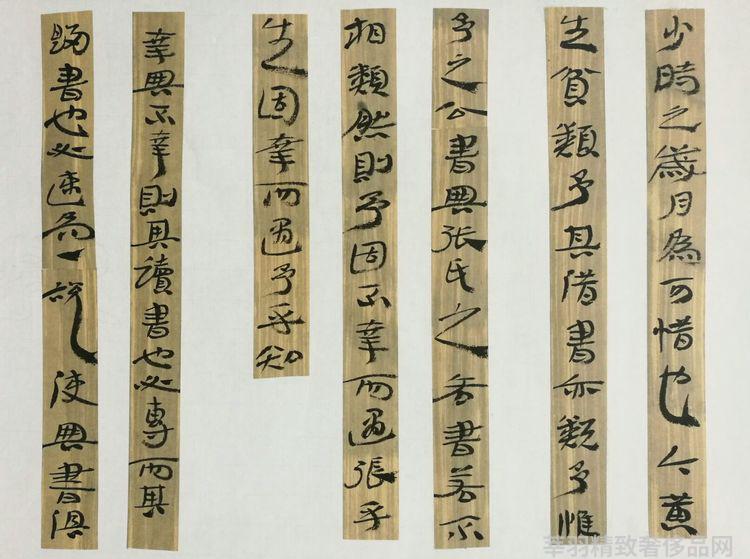 少時之歲月為可惜也今黄
生貧類予其借書亦類予惟
予之公書與张氏之吝書若不
相類然則予固不幸而遇張乎
生固幸而遇予乎知
幸與不幸則其讀書也必專而其
歸書也必速為一說使與書俱
幸羽精致奢侈品网